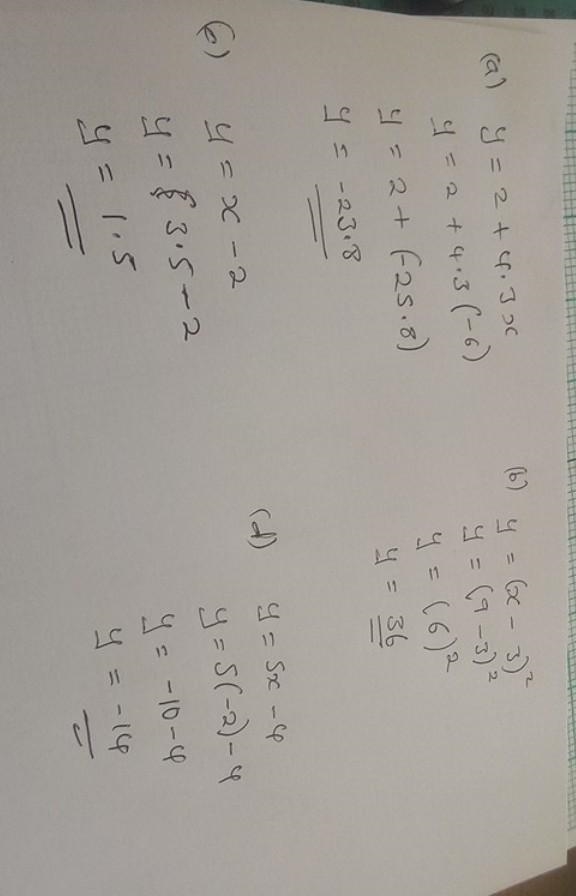 (a) y = 2 + 4.3x
y = 2 + 4.3(-6)
y = 2 + (-25.8)
y = -23.8
(b) y = (x - 3)²
y = (9 - 3)²
y = (6)²
y = 36
(c) y = x - 2
y = 3.5 - 2
y = 1.5
(d) y = 5x - 4
y = 5(-2) - 4
y = -10 - 4
y = -14